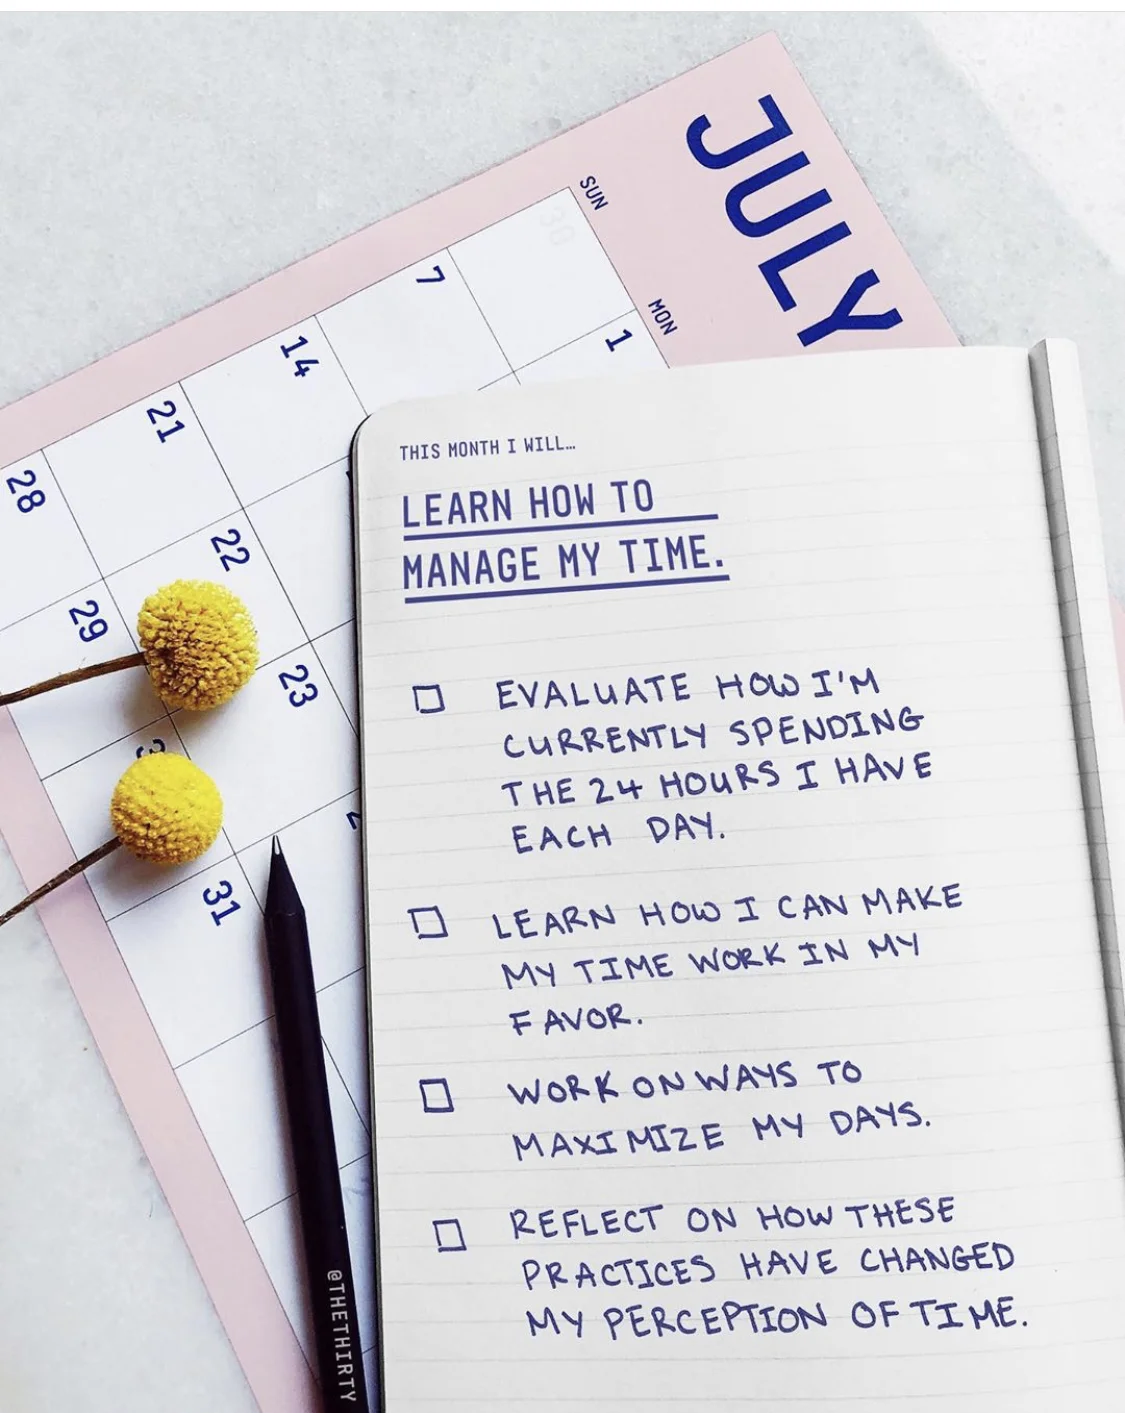 JULY
SUN
MON
30
7
14
21
28
1
22
29
23
31
THIS MONTH I WILL...
LEARN HOW TO
MANAGE MY TIME.
EVALUATE HOW I'M
CURRENTLY SPENDING
THE 24 HOURS I HAVE
EACH DAY.
LEARN HOW I CAN MAKE
MY TIME WORK IN MY
FAVOR.
WORK ON WAYS TO
MAXIMIZE MY DAYS.
REFLECT ON HOW THESE
PRACTICES HAVE CHANGED
MY PERCEPTION OF TIME.
@THETHIRTY